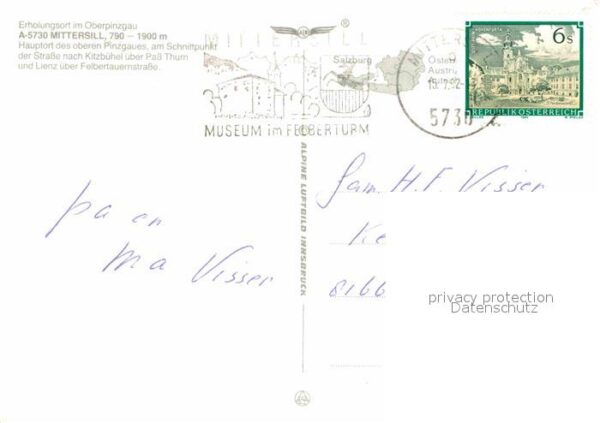 Erholungsort im Oberpinzgau
A-5730 MITTERSILL, 790 – 1900 m
Hauptort des oberen Pinzgaues, am Schnittpunkt
der Straße nach Kitzbühel über Paß Thurn
und Lienz über Felbertauernstraße.
®
MITTERSILL
Salzburg
MUSEUM im FELBERTURM
MITTERS
Österr
Austri
5730
6s
REPUBLIK ÖSTERREICH
ALPINE LUFTBILD INNSBRUCK
pa en
ma Visser
fam. H.F. Visser
Ke
8166
privacy protection
Datenschutz